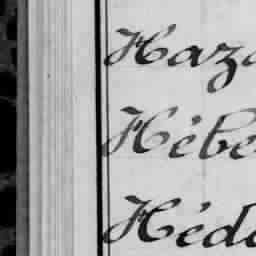 Haza
Hébe
Héde